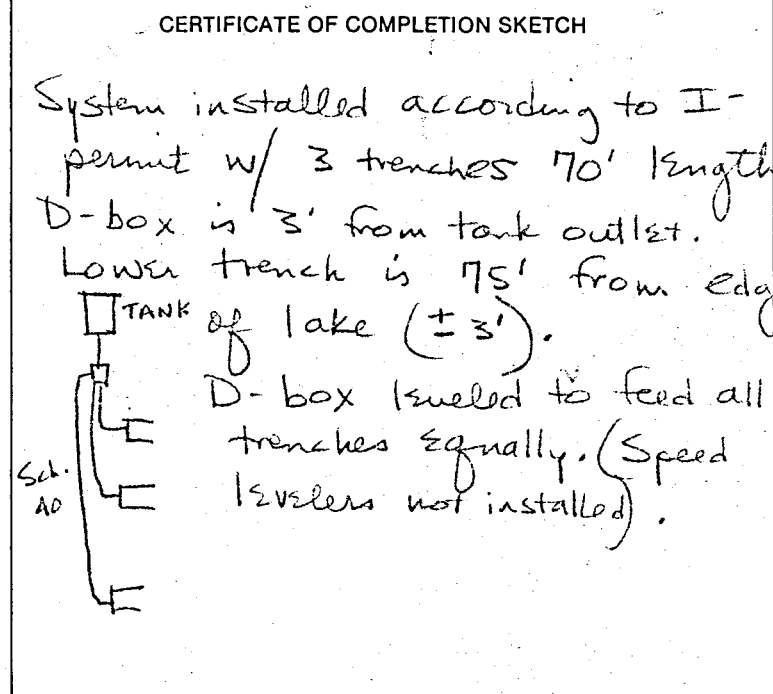 CERTIFICATE OF COMPLETION SKETCH
System installed according to I-
permit w/ 3 trenches 70' length
D-box is 3' from tank outlet.
Lower trench is 75' from edg
TANK
of lake (± 3').
D-box leveled to feed all
trenches equally. (Speed
levelers not installed).
Sch.
40